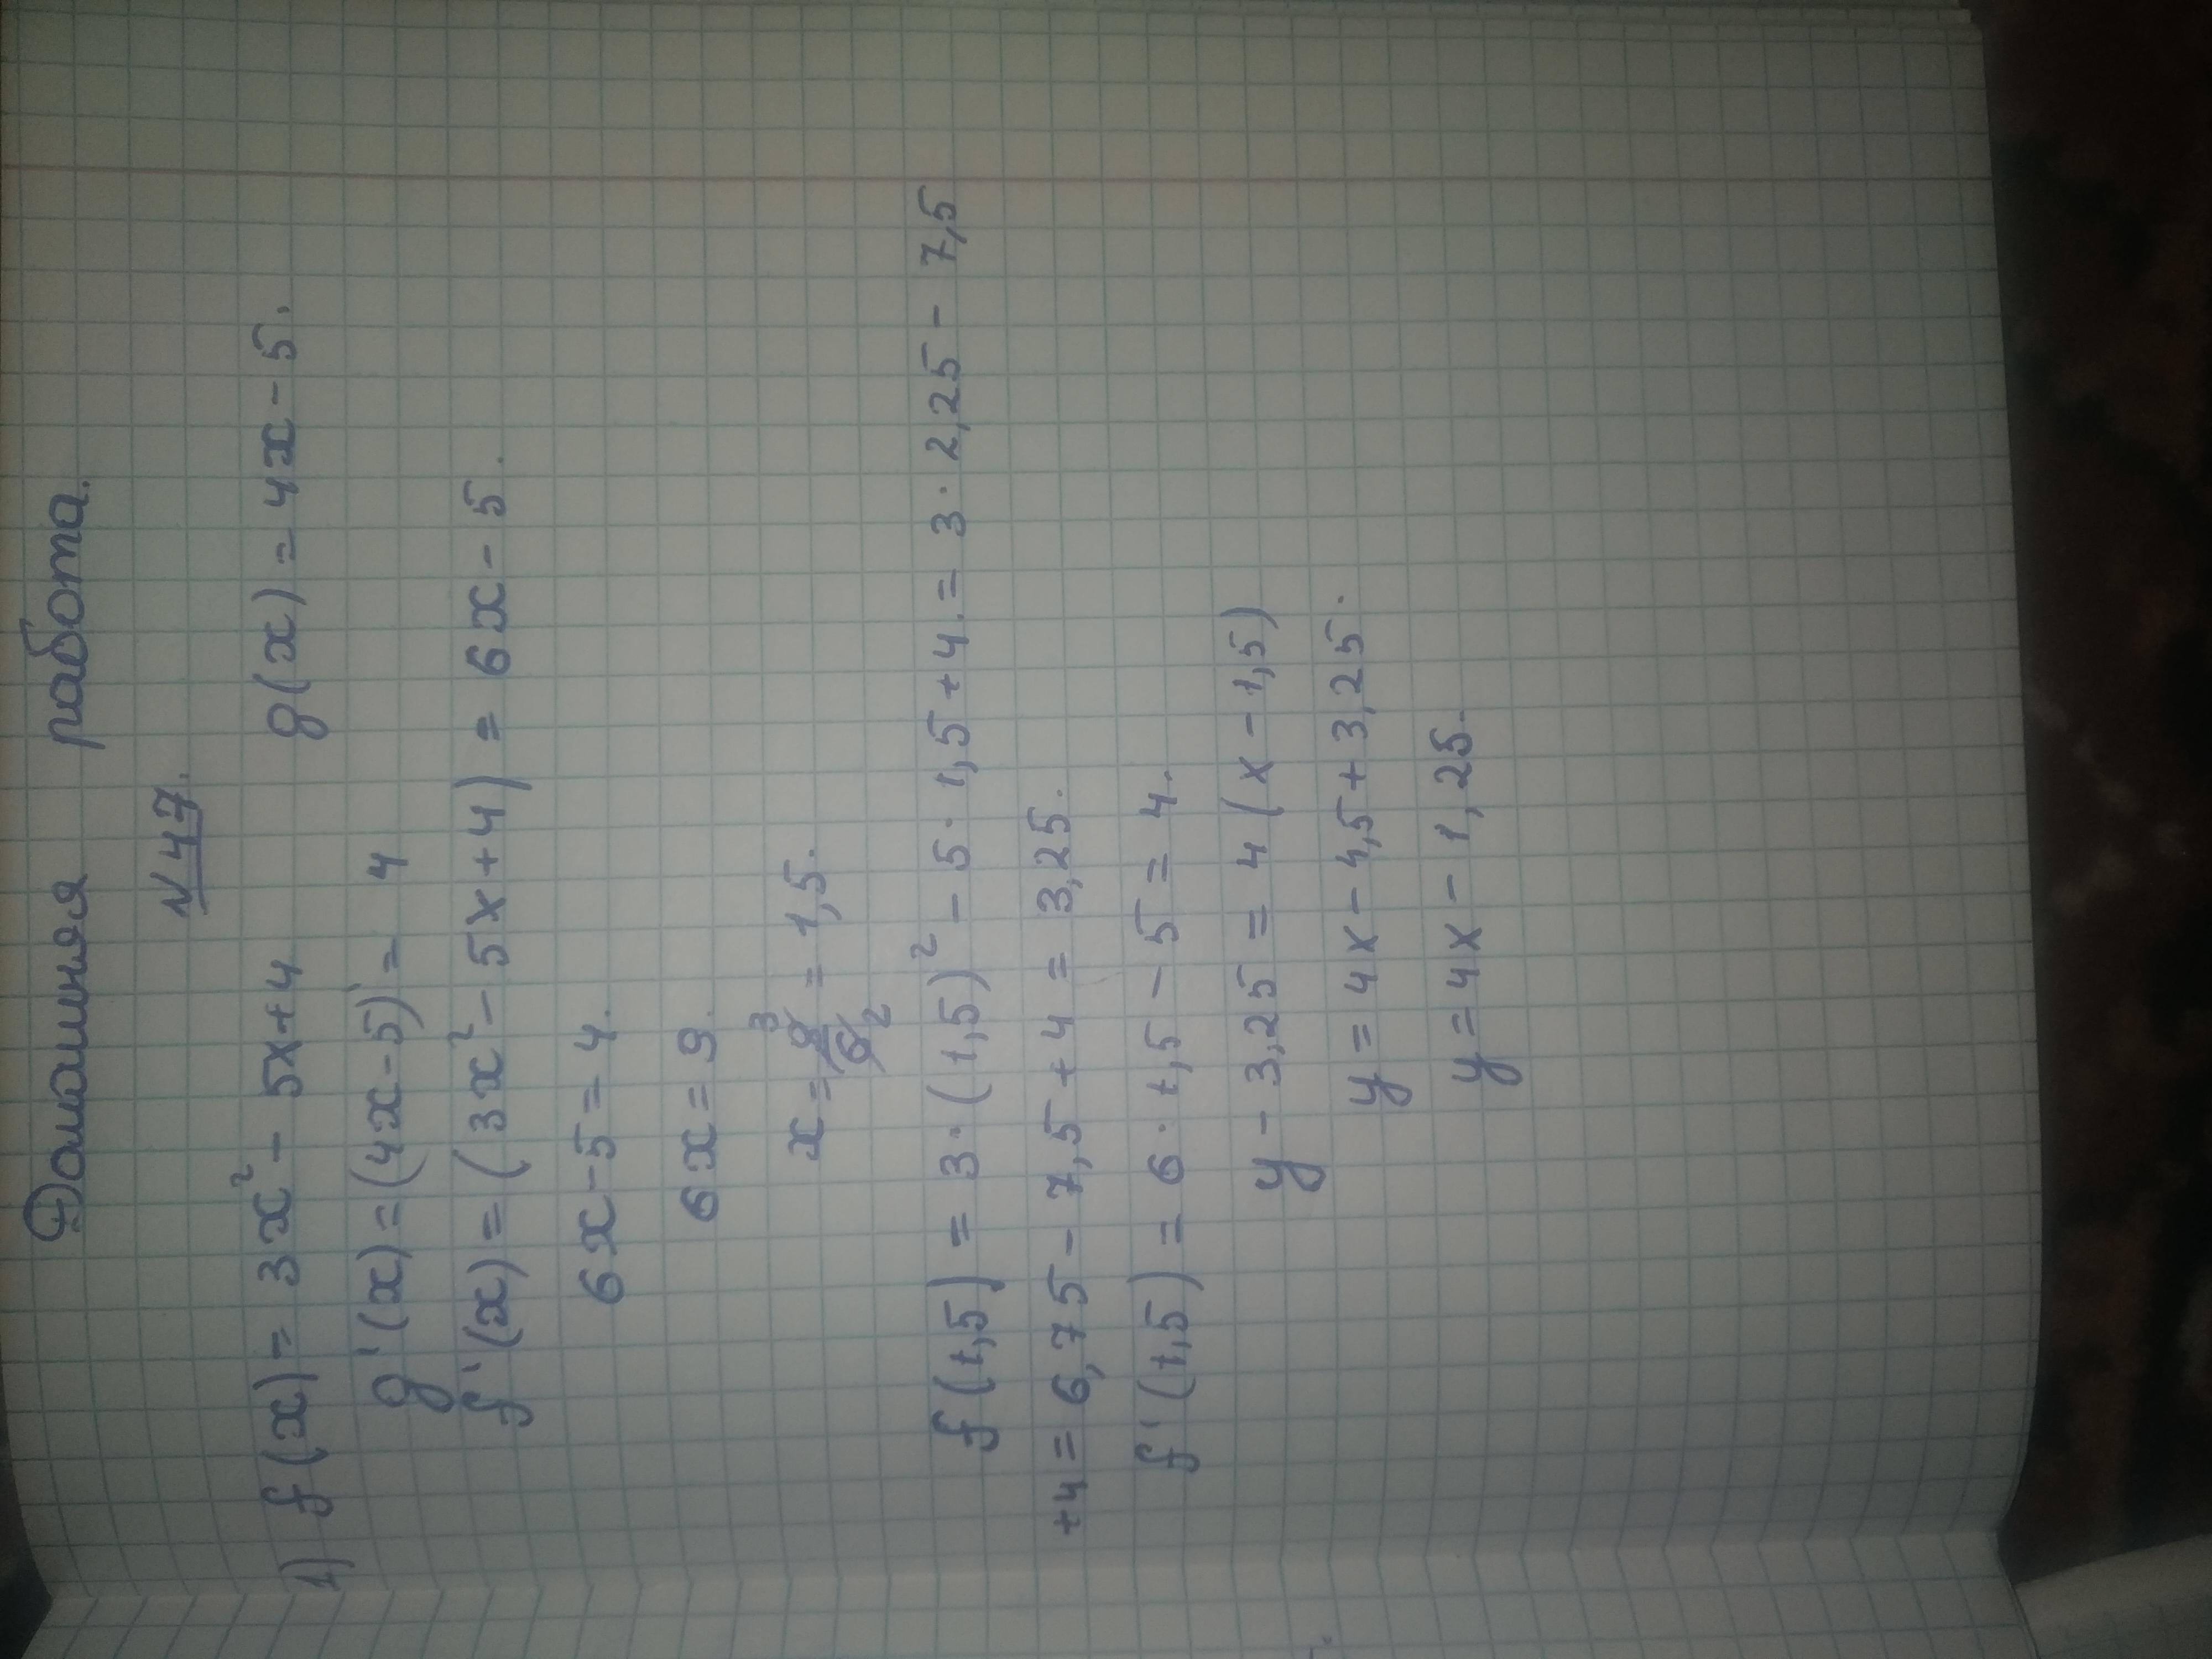 Домашняя работа.
№ 47.
1) f(x) = 3x² - 5x+4 g(x) = 4x - 5.
g'(x) = (4x-5)' = 4
f'(x) = (3x² - 5x+4) = 6x - 5.
6x - 5 = 4.
6x = 9.
x = 9/6 3 2 = 1,5.
f(1,5) = 3·(1,5)² - 5·1,5+4. = 3·2,25 - 7,5
+4 = 6,75 - 7,5+4 = 3,25.
f'(1,5) = 6·1,5 - 5 = 4.
y - 3,25 = 4(x - 1,5)
y = 4x - 4,5 + 3,25.
y = 4x - 1,25.